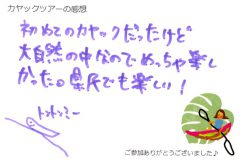 カヤックツアーの感想
初めてのカヤックだったけど
大自然の中なのでめっちゃ楽し
かった。県民でも楽しい!
ご参加ありがとうございました♪